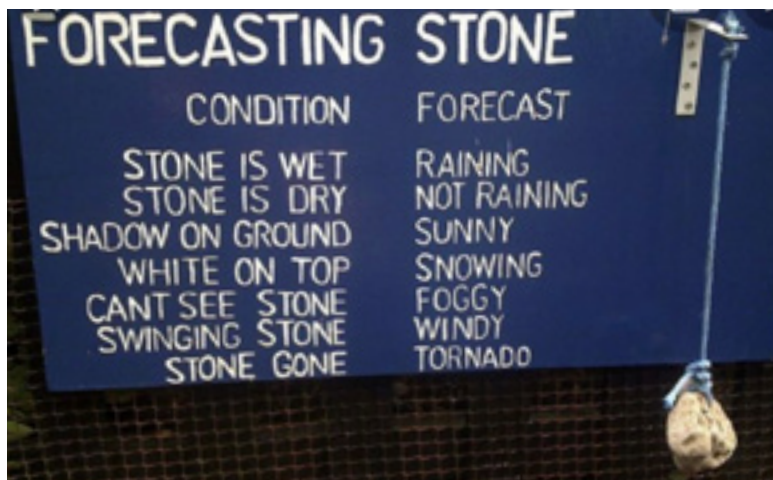 FORECASTING STONE
CONDITION FORECAST
STONE IS WET RAINING
STONE IS DRY NOT RAINING
SHADOW ON GROUND SUNNY
WHITE ON TOP SNOWING
CANT SEE STONE FOGGY
SWINGING STONE WINDY
STONE GONE TORNADO